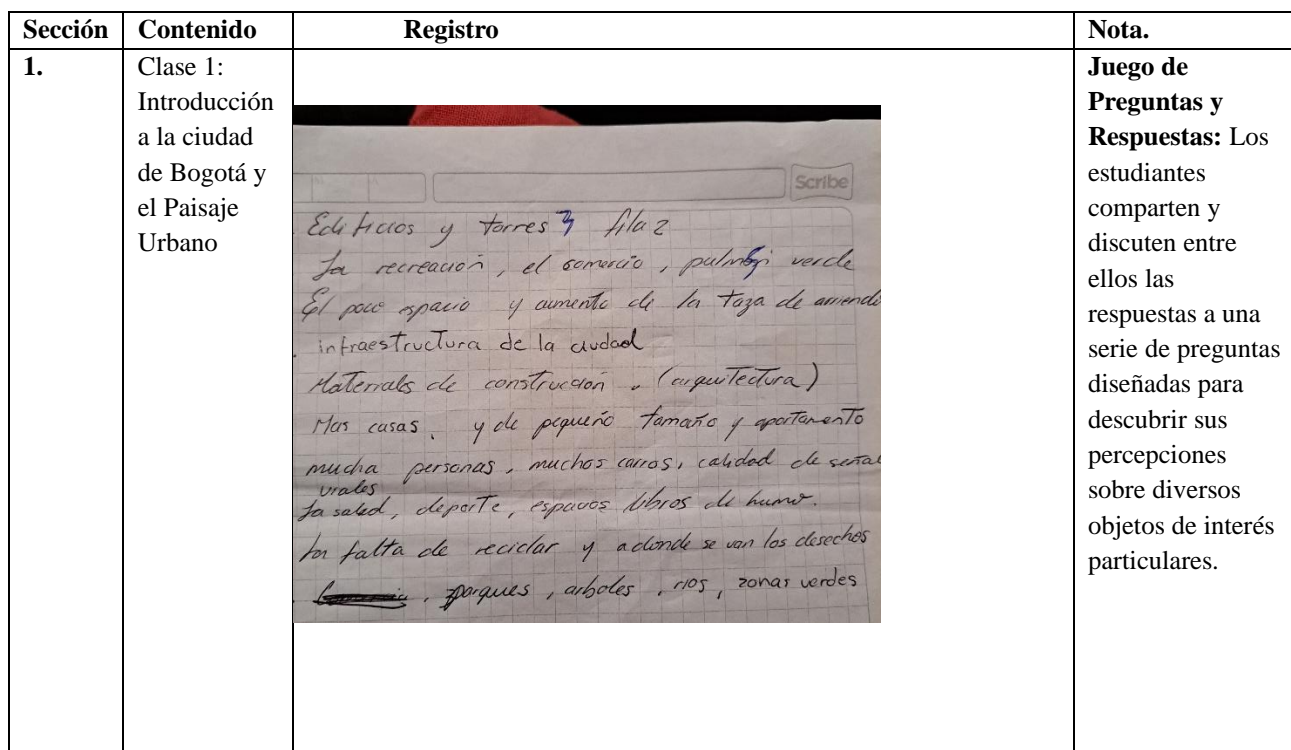 Sección Contenido Registro Nota.
1.
Clase 1:
Introducción
a la ciudad
de Bogotá y
el Paisaje
Urbano
Scribe
Edificios y torres fila 2
La recreación, el comercio, pulmon verde
El poco espacio y aumento de la taza de arriendo
infraestructura de la ciudad
Materiales de construcción. (arquitectura)
Mas casas, y de pequeño tamaño y apartamento
mucha personas, muchos carros, calidad de señal
viales
La salud, deporte, espacios libres de humo.
La falta de reciclar y a donde se van los desechos
, parques, arboles, rios, zonas verdes
Juego de
Preguntas y
Respuestas: Los
estudiantes
comparten y
discuten entre
ellos las
respuestas a una
serie de preguntas
diseñadas para
descubrir sus
percepciones
sobre diversos
objetos de interés
particulares.